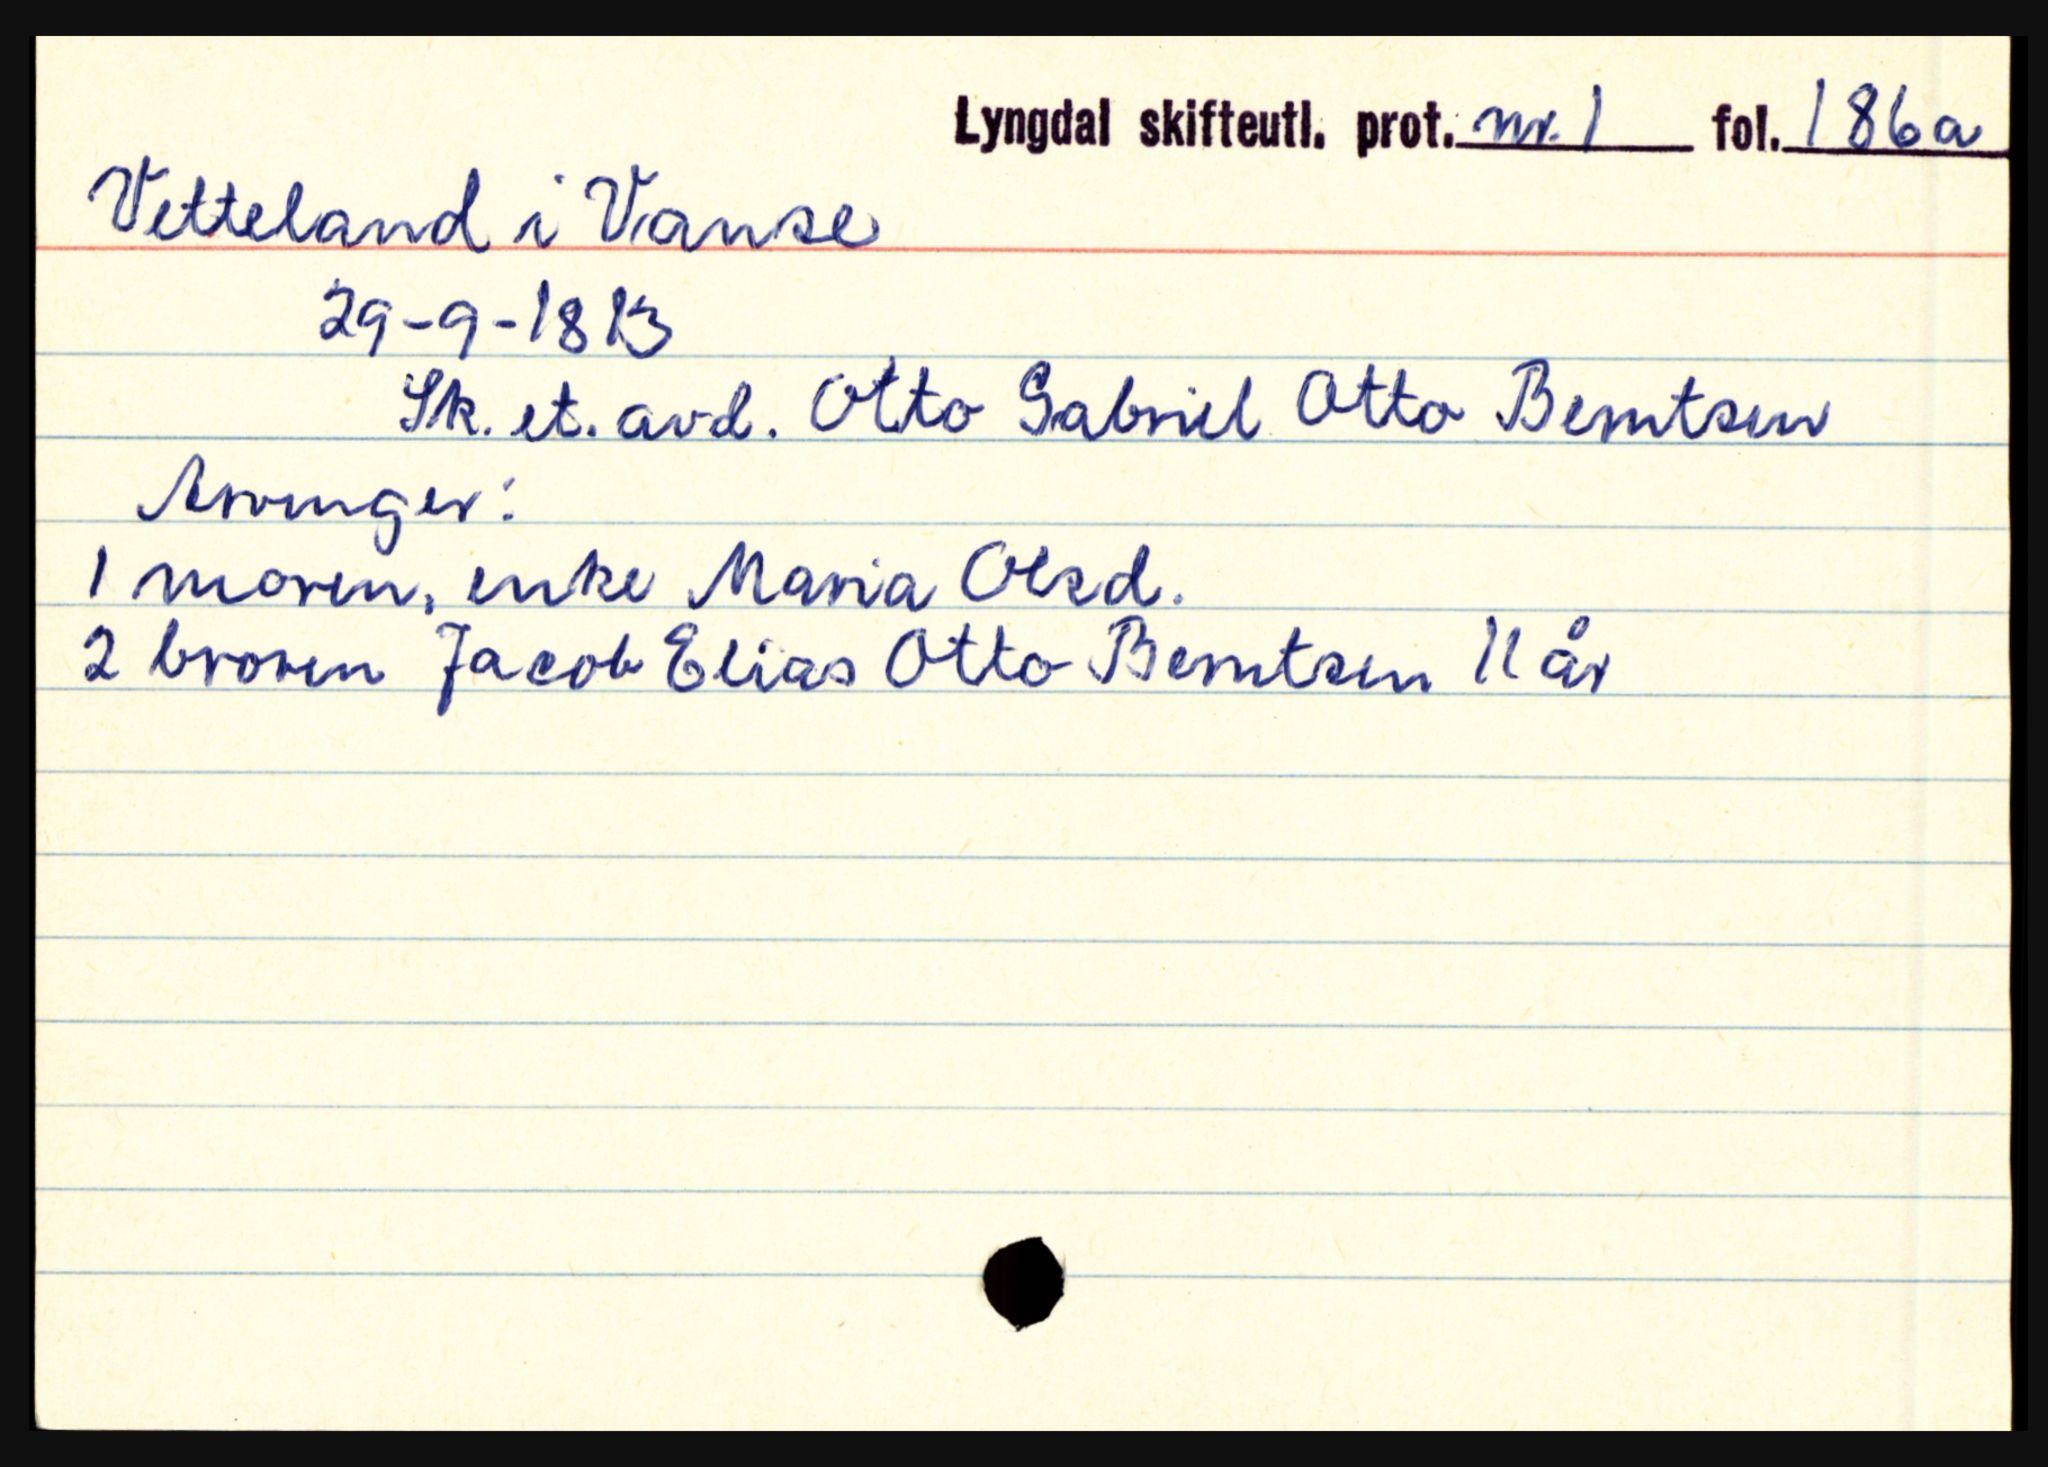 Lyngdal skifteutl. prot. nr. 1 fol. 186a
Vetteland i Vanse
29-9-1813
Sk. et. avd. Otto Gabriel Otto Berntsen
Arvinger:
1 moren, enke Maria Olsd.
2 broren Jacob Elias Otto Berntsen 11 år